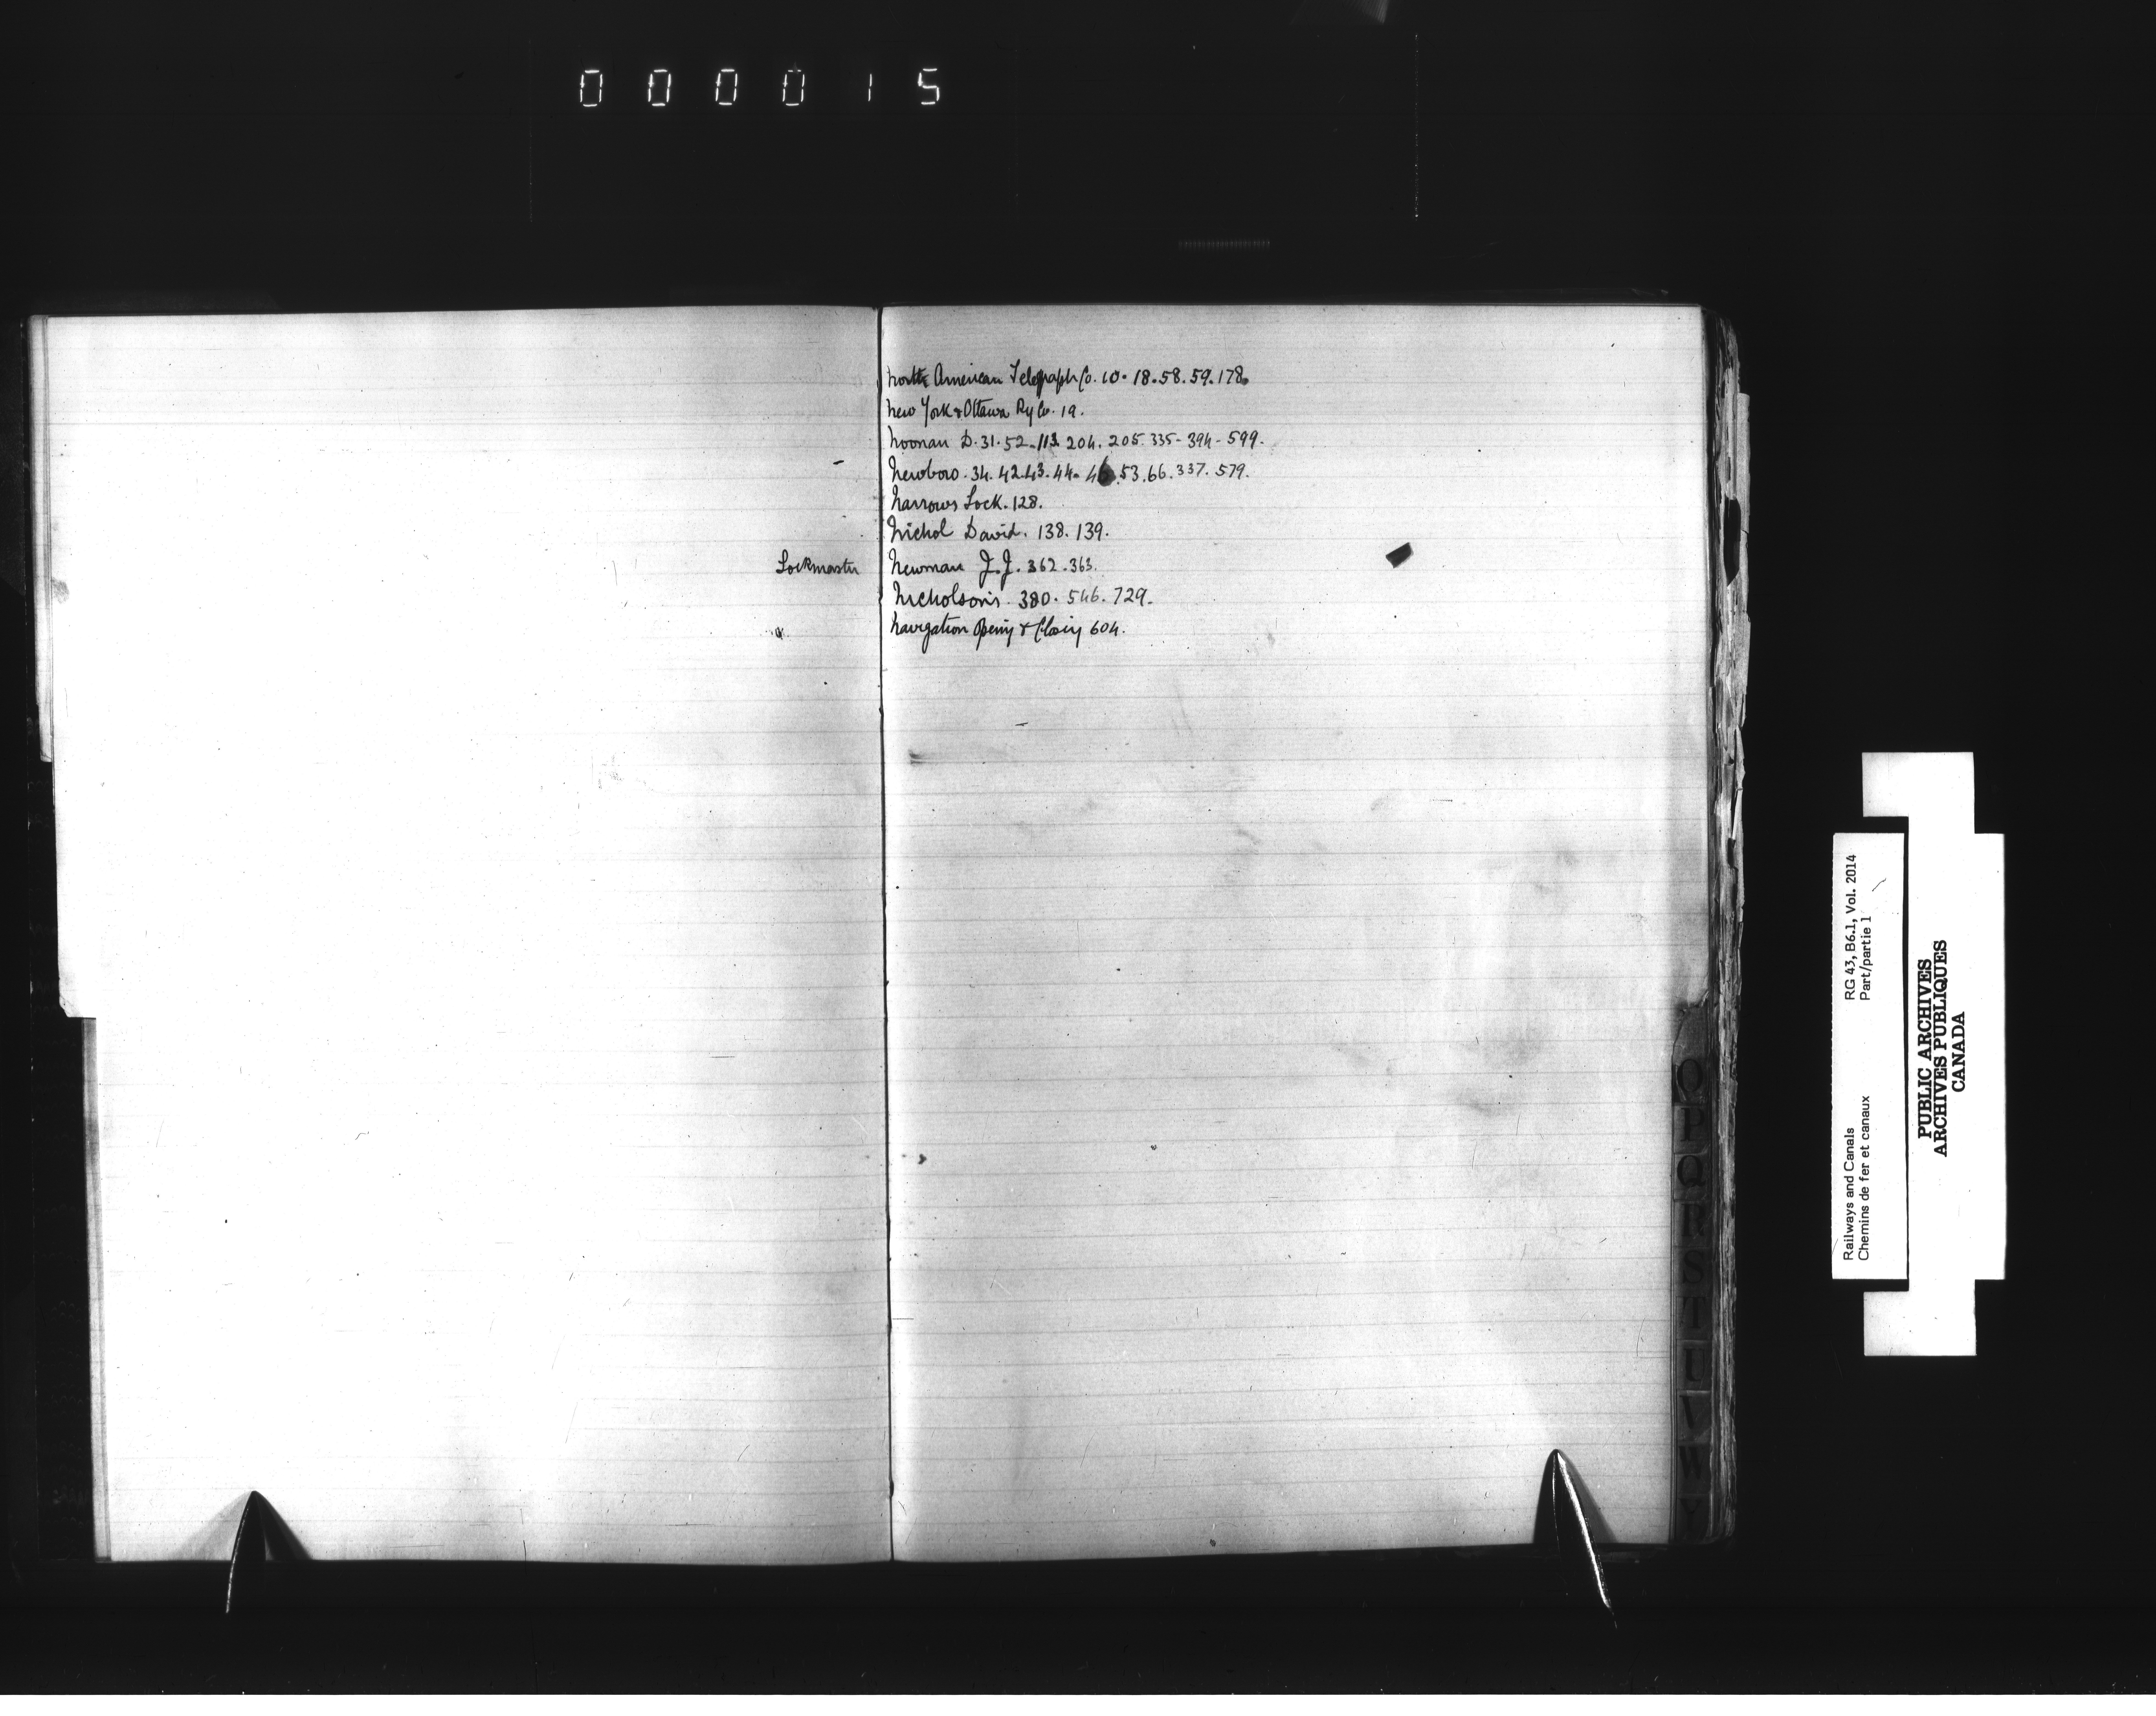 000015
North American Telegraph Co. 10. 18. 58. 59. 178.
New York & Ottawa Ry Co. 19.
Noonan D. 31. 52. 113. 204. 205. 335 - 394 - 599.
Newboro. 34. 42. 43. 44. 46. 53. 66. 337. 579.
Narrows Lock. 128.
Nichol David. 138. 139.
Lockmaster Newman J.J. 362. 363.
Nicholson's. 380. 546. 729.
Navigation Opening & Closing 604.
O
P
Q
R
S
T
U
V
W
Y
Railways and Canals RG 43, B6.1, Vol. 2014
Chemins de fer et canaux Part/partie 1
PUBLIC ARCHIVES
ARCHIVES PUBLIQUES
CANADA